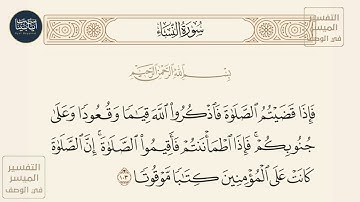 سُورَةُ النِّسَاءِ
التفسير
الميسر
في الوصف
بِسْمِ اللَّهِ الرَّحْمَٰنِ الرَّحِيمِ
فَإِذَا قَضَيْتُمُ ٱلصَّلَوٰةَ فَٱذْكُرُوا۟ ٱللَّهَ قِيَـٰمًا وَقُعُودًا وَعَلَىٰ
جُنُوبِكُمْ ۚ فَإِذَا ٱطْمَأْنَنتُمْ فَأَقِيمُوا۟ ٱلصَّلَوٰةَ ۚ إِنَّ ٱلصَّلَوٰةَ
كَانَتْ عَلَى ٱلْمُؤْمِنِينَ كِتَـٰبًا مَّوْقُوتًا ١٠٣
التفسير
الميسر
في الوصف